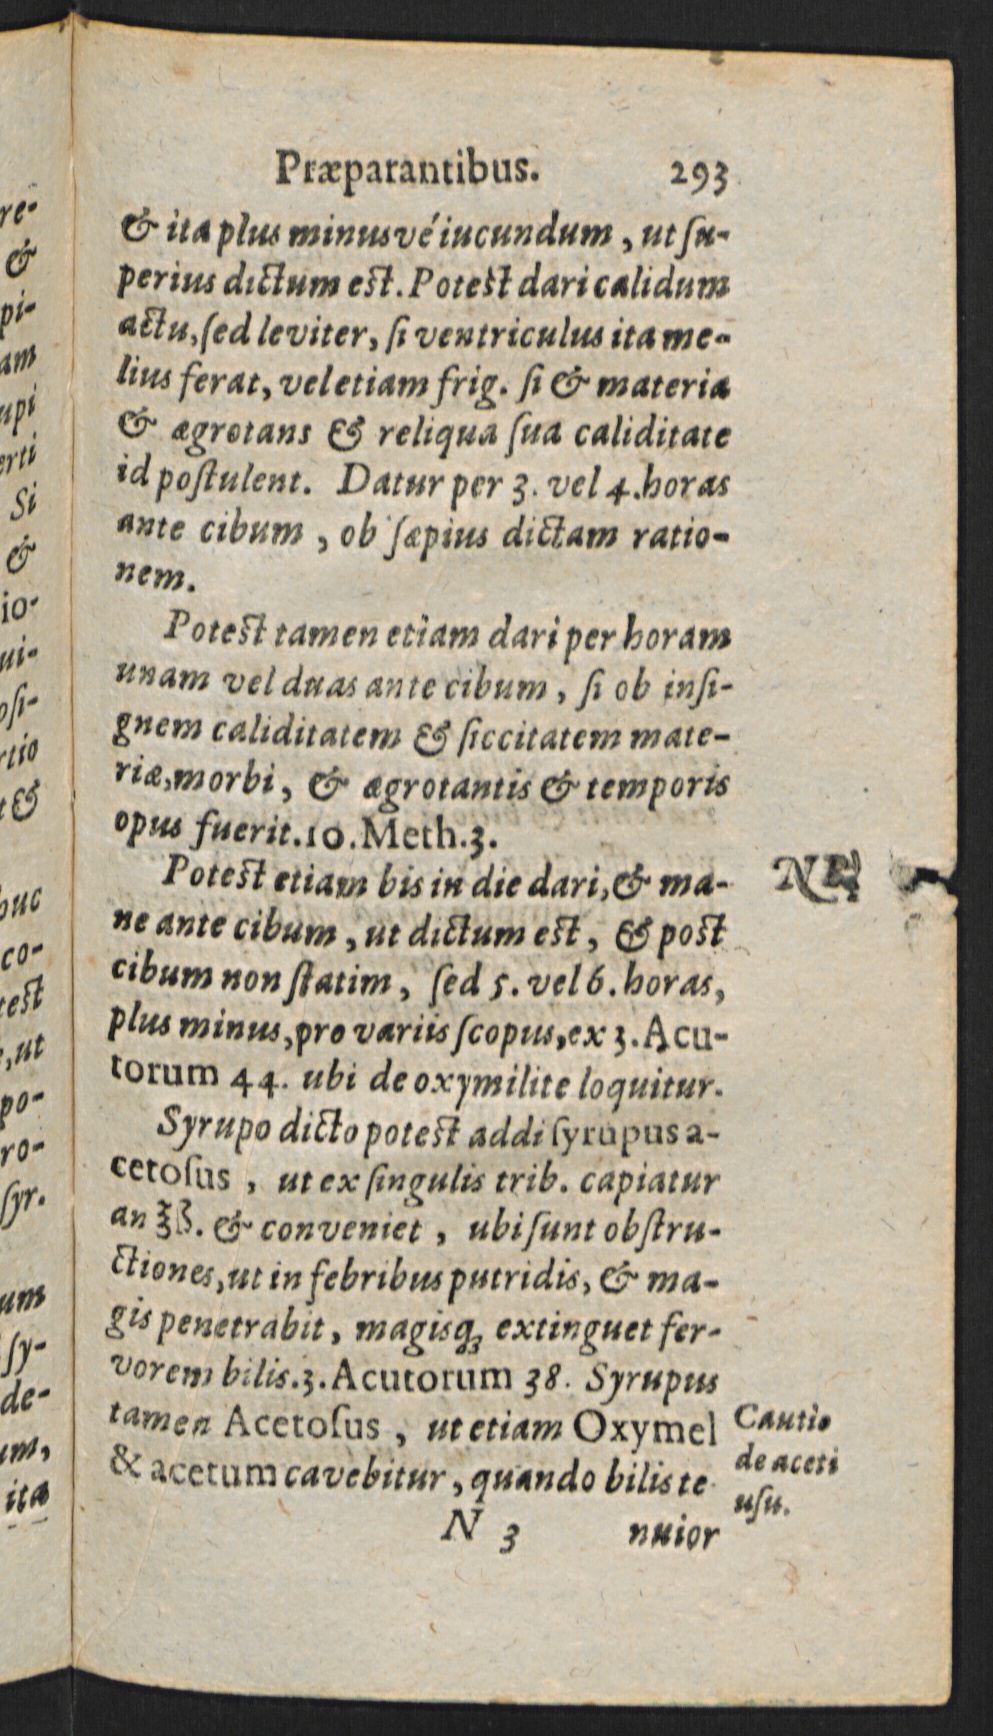 Præparantibus. 293
& ita plus minusvé iucundum, ut ſu-
perius dictum est. Potest dari calidum
actu, ſed leviter, ſi ventriculus ita me-
lius ferat, vel etiam frig. ſi & materia
& ægrotans & reliqua ſua caliditate
id poſtulent. Datur per 3. vel 4. horas
ante cibum, ob ſæpius dictam ratio-
nem.
Potest tamen etiam dari per horam
unam vel duas ante cibum, ſi ob inſi-
gnem caliditatem & ſiccitatem mate-
riæ, morbi, & ægrotantis & temporis
opus fuerit. 10. Meth. 3.
Potest etiam bis in die dari, & ma-
ne ante cibum, ut dictum est, & post
cibum non ſtatim, ſed 5. vel 6. horas,
plus minus, pro variis ſcopus, ex 3. Acu-
torum 44. ubi de oxymilite loquitur.
Syrupo dicto potest addi ſyrupus a-
cetoſus, ut ex ſingulis trib. capiatur
an ℥ß. & conveniet, ubi ſunt obſtru-
ctiones, ut in febribus putridis, & ma-
gis penetrabit, magisq́ȝ extinguet fer-
vorem bilis. 3. Acutorum 38. Syrupus
tamen Acetoſus, ut etiam Oxymel
& acetum cavebitur, quando bilis te
N 3 nuior
NB
Cautio
de aceti
uſu.
re-
&
pi-
am
upi
erti
Si
&
io-
ui-
oſi-
rtio
t &
huc
co-
test
, ut
po-
ro-
ſyr.
um
ſy-
de-
um,
ita